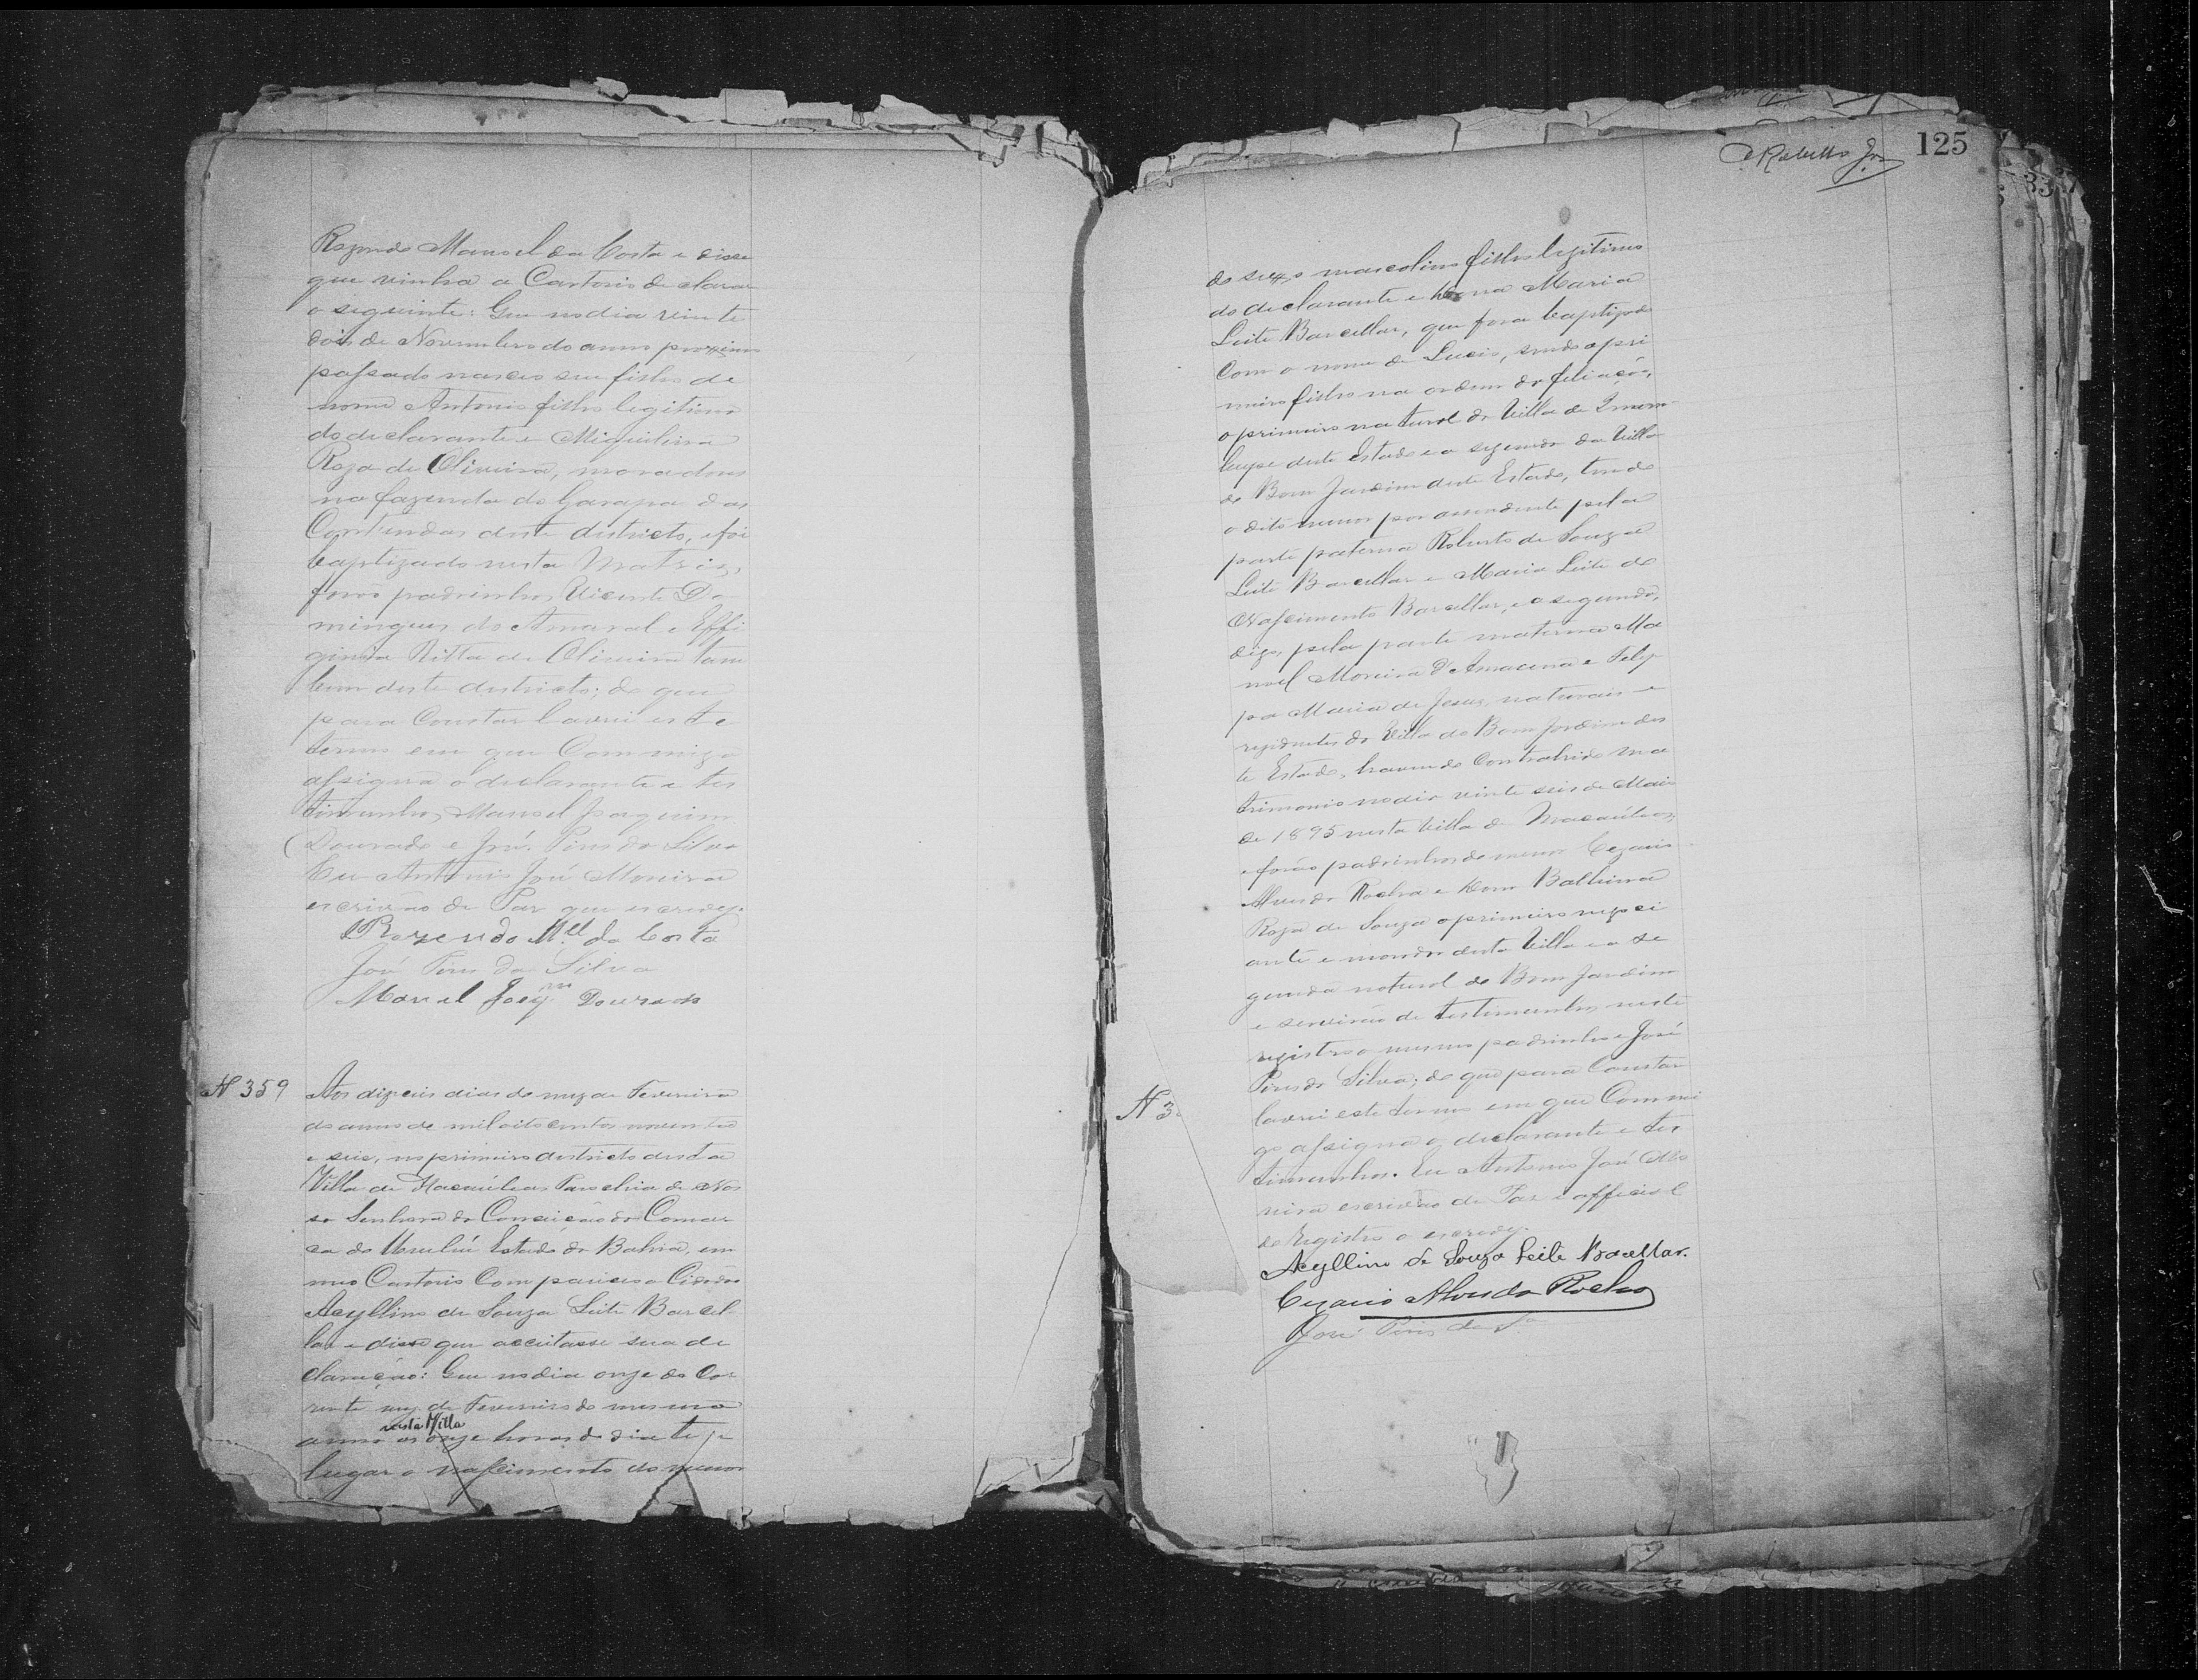 Rozendo Manoel da Costa e disse
que vinha a Cartorio declarar
o seguinte: Que no dia vinte
dois de Novembro do anno proximo
passado nasceo seu filho de
nome Antonio filho legitimo
do declarante e Miguilina
Roza de Oliveira, moradores
na fazenda do Garapa das
Contendas deste districto, e foi
baptizado nesta Matriz,
forão padrinhos Vicente Do
mingues do Amaral e Effi
ginia Ritta de Oliveira tam
bem deste districto; do que
para Constar lavrei este
termo em que Commigo
assigna o declarante e tes
timunhas Manoel Joaquim
Dourado e José Pires da Silva
Eu Antonio José Moreira
escrivão de Paz que escrevy.
Rozendo Mel da Costa
José Pires da Silva
Manoel Joaqm Dourado
N 359
Aos dizeseis dias do mez de Fevereiro
do anno de mil oito centos noventa
e seis, no primeiro districto desta
Villa de Macaúbas Parochia de Nos
sa Senhora da Conceição da Comar
ca do Urubú Estado da Bahia, em
meo Cartorio Compareceo o Cidadão
Acyllino de Souza Leite Barcel
lar e disse que acceitasse sua de
claração: Que no dia onze do Cor
rente mez de Fevereiro do mesmo
nesta Villa
anno as onze horas do dia teve
lugar o nascimento do menor
125
do sexo masculino filho legitimo
do declarante e Dona Maria
Leite Barcellar, que fora baptizado
Com o nome de Lucio, sendo o pri
meiro filho na ordem da filiação,
o primeiro natural da Villa de
deste Estado e a segunda da Villa
do Bom Jardim deste Estado, tendo
o dito menor por ascendente pela
parte paterna Roberto de Souza
Leite Barcellar e Maria Leite do
Nascimento Barcellar, e a segunda,
digo, pela parte materna Ma
noel Moreira D'Amacena e Felip
pa Maria de Jesus, naturais e
rezidentes da Villa do Bom Jardim des
te Estado, havendo Contrahido ma
trimonio no dia vinte seis de Maio
de 1895 nesta Villa de Macaúbas,
e forão padrinhos do menor Cezario
Alves da Rocha e Dona Balbina
Roza de Souza o primeiro negoci
ante e morador desta Villa e a se
gunda natural do Bom Jardim
e servirão de testemunhas neste
registro o mesmo padrinho e José
Pires da Silva; do que para Constar
N 3
lavrei este termo em que Commi
go assigna o declarante e tes
timunhas. Eu Antonio José Mo
reira escrivão de Paz e official
do Registro o escrevy.
Acyllino de Souza Leite Barcellar.
Cezario Alves da Rocha
José Pires da Sa